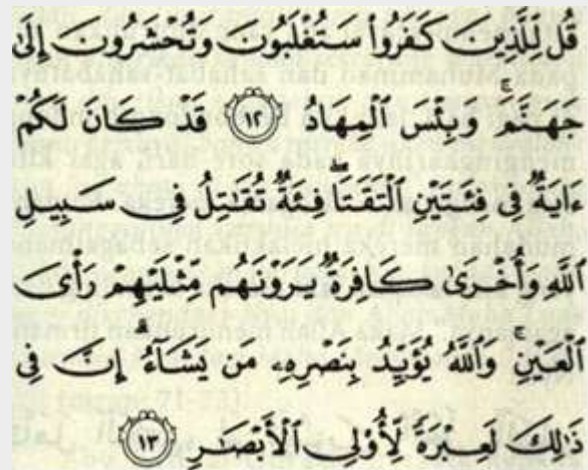 قُل لِّلَّذِينَ كَفَرُوا۟ سَتُغْلَبُونَ وَتُحْشَرُونَ إِلَىٰ
جَهَنَّمَ ۚ وَبِئْسَ ٱلْمِهَادُ ١٢ قَدْ كَانَ لَكُمْ
ءَايَةٌ فِى فِئَتَيْنِ ٱلْتَقَتَا ۖ فِئَةٌ تُقَـٰتِلُ فِى سَبِيلِ
ٱللَّهِ وَأُخْرَىٰ كَافِرَةٌ يَرَوْنَهُم مِّثْلَيْهِمْ رَأْىَ
ٱلْعَيْنِ ۚ وَٱللَّهُ يُؤَيِّدُ بِنَصْرِهِۦ مَن يَشَآءُ ۗ إِنَّ فِى
ذَٰلِكَ لَعِبْرَةً لِّأُو۟لِى ٱلْأَبْصَـٰرِ ١٣